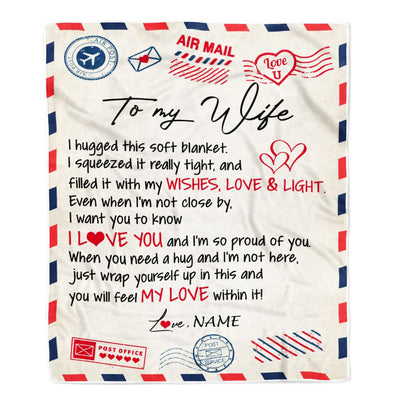 AIR POST
AIR MAIL
Love
U
To my Wife
I hugged this soft blanket.
I squeezed it really tight, and
filled it with my WISHES, LOVE & LIGHT.
Even when I'm not close by,
I want you to know
I L❤VE YOU and I'm so proud of you.
When you need a hug and I'm not here,
just wrap yourself up in this and
you will feel MY LOVE within it!
Love, NAME
POST OFFICE
POST
SERVICE